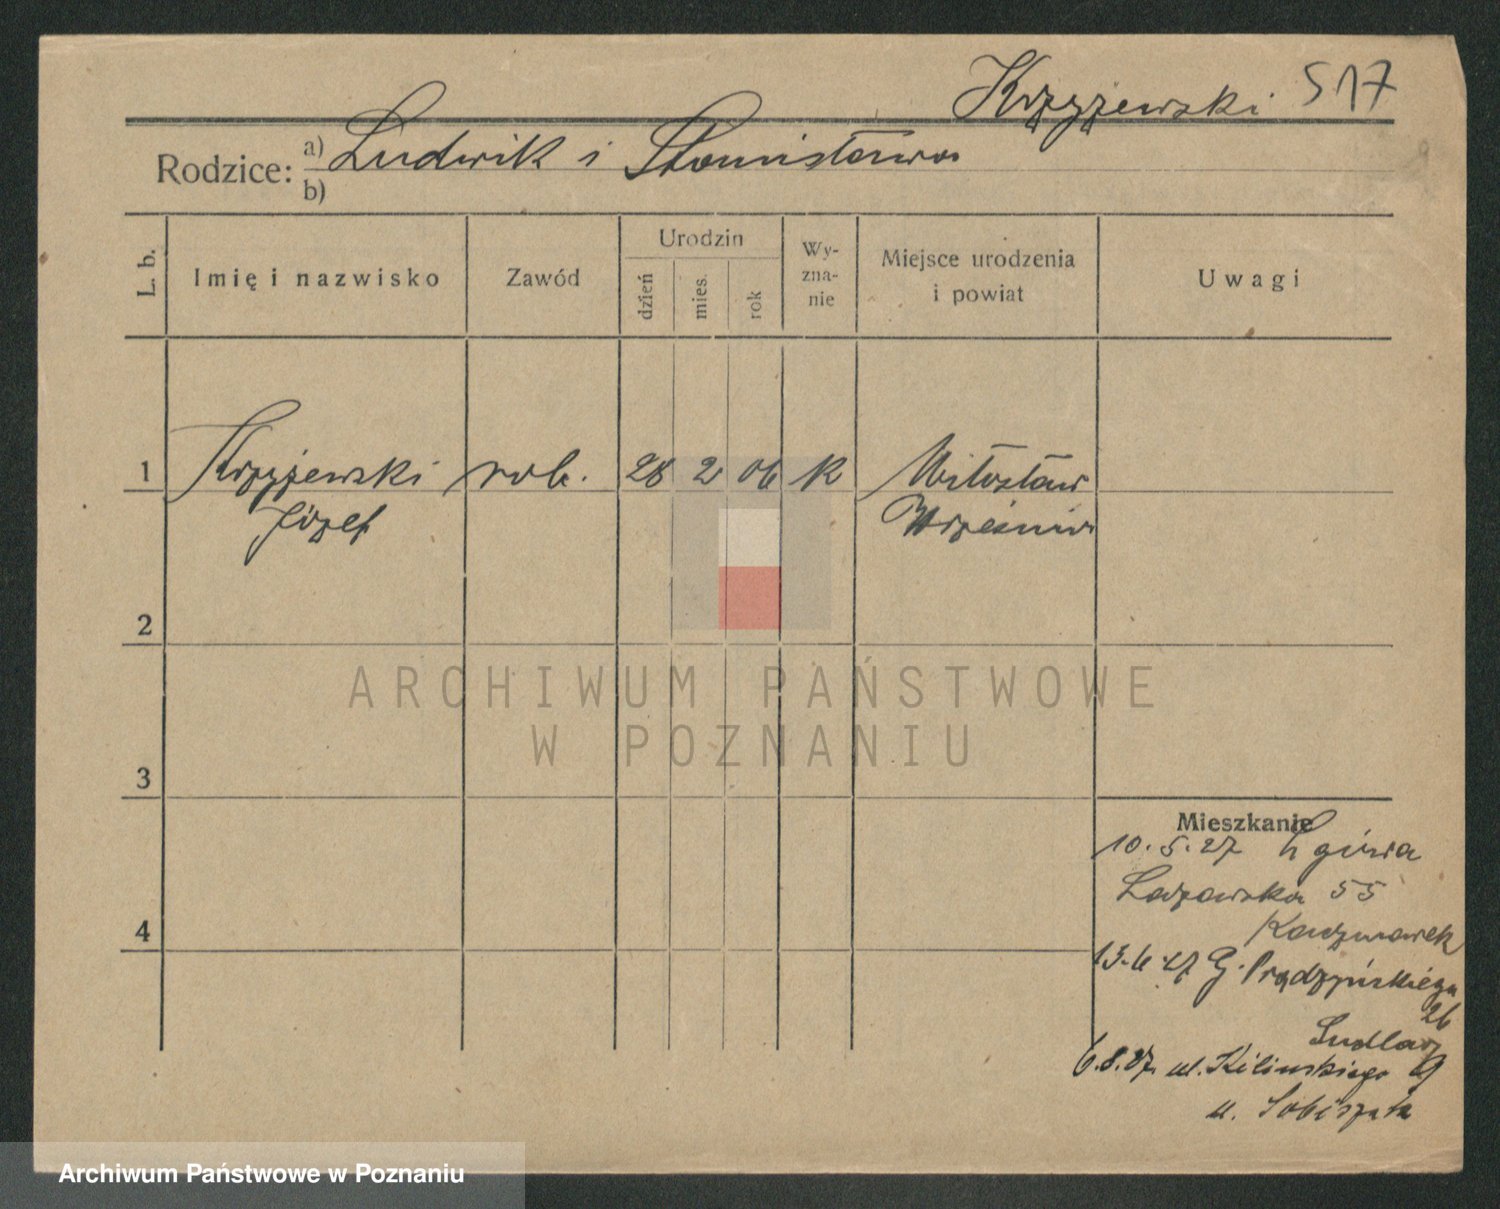 Krzyżewski 517
Rodzice: a) Ludwik i Stanisława
b)
L. b.
Imię i nazwisko
Zawód
Urodzin
dzień
mies.
rok
Wy-
zna-
nie
Miejsce urodzenia
i powiat
Uwagi
1 Krzyżewski rob. 28 2 06 k Miłosław
Józef Września
2
3
4
Mieszkanie
10.5.27 z
Łazowska 55
Kaczmarek
13.6.27 G. Prądzyńskiego
26
6.8.27. ul. Kilińskiego 9
u.
ARCHIWUM PAŃSTWOWE
W POZNANIU
Archiwum Państwowe w Poznaniu